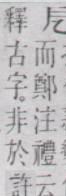 而鄭注禮云
釋古字。非於許